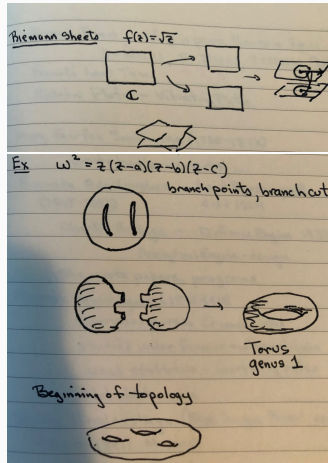 Riemann sheets f(z)=√z
ℂ
Ex w² = z(z-a)(z-b)(z-c)
branch points, branch cut
Torus
genus 1
Beginning of topology